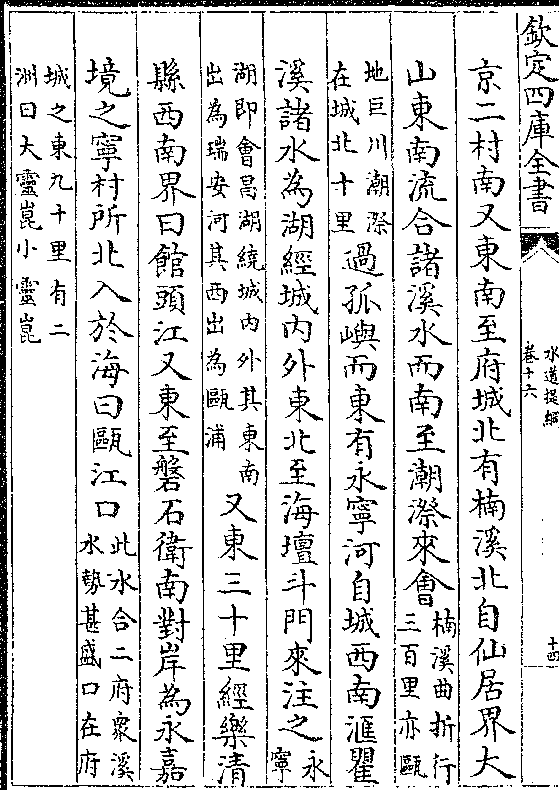 欽定四庫全書
水道提綱
卷十六
十四
京二村南又東南至府城北有楠溪北自仙居界大
山東南流合諸溪水而南至潮漈來會楠溪曲折行
三百里亦甌
地巨川潮漈
在城北十里過孤嶼而東有永寧河自城西南滙瞿
溪諸水為湖經城内外東北至海壇斗門來注之永
寧
湖即會昌湖繞城内外其東南
出為瑞安河其西出為甌浦又東三十里經樂清
縣西南界曰館頭江又東至磐石衛南對岸為永嘉
境之寧村所北入於海曰甌江口此水合二府衆溪
水勢甚盛口在府
城之東九十里有二
洲曰大靈崑小靈崑